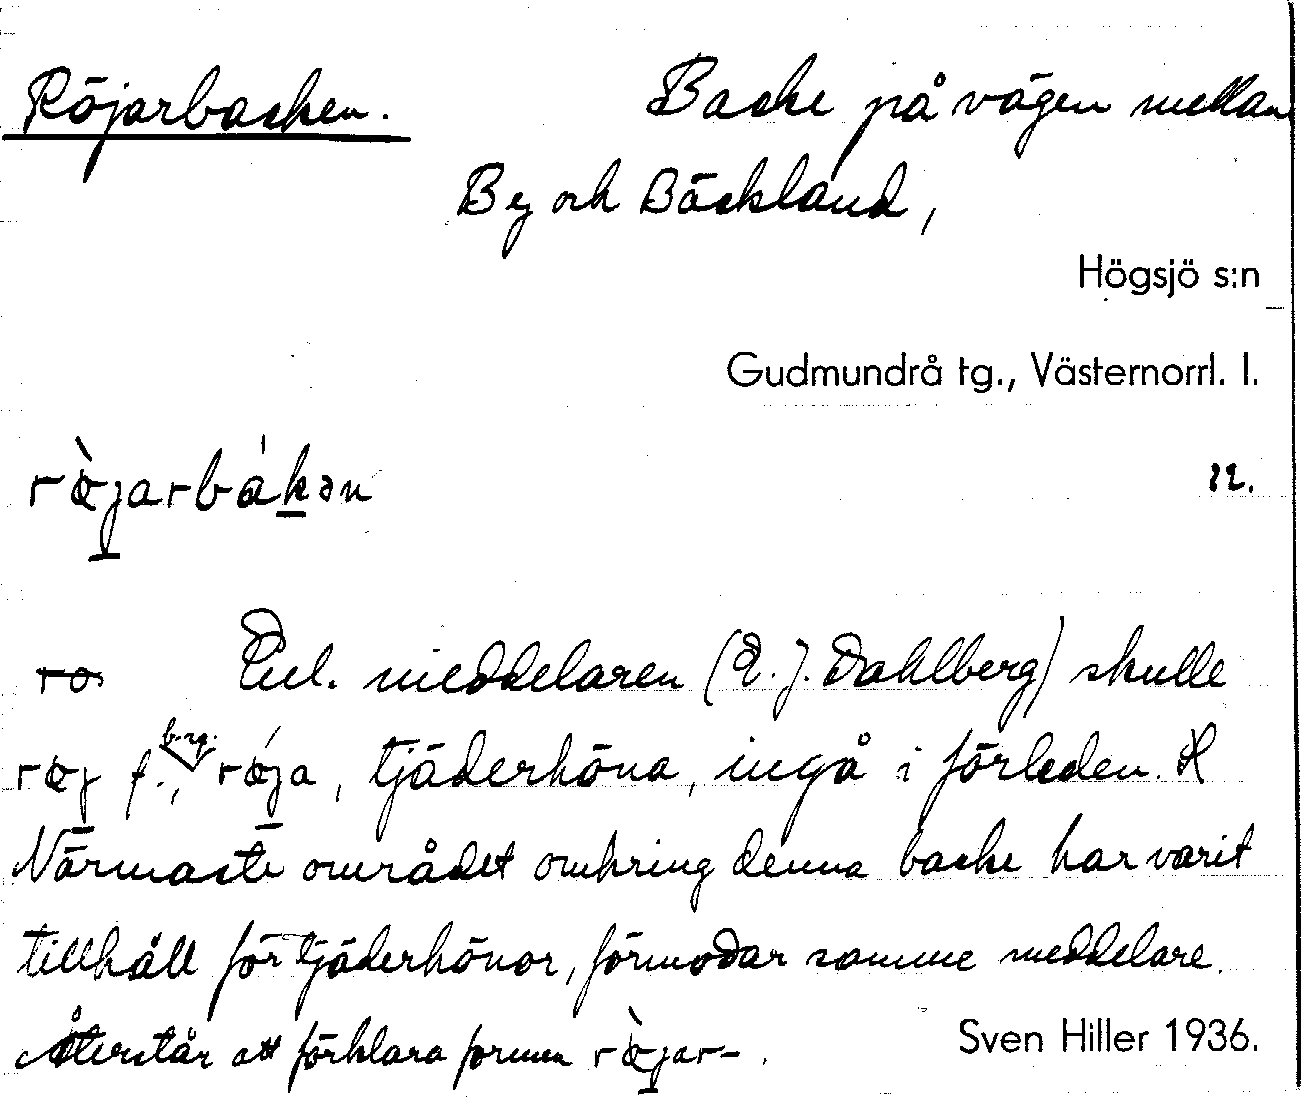 Röjarbacken. Backe på vägen mellan
By och Bäckland,
Högsjö s:n
Gudmundrå tg., Västernorrl. l.
ræ̀jarbákən 22.
Enl. meddelaren (E. J. Dahlberg) skulle
ræj f., b. sg. rǽja, tjäderhöna, ingå i förleden.
Närmaste området omkring denna backe har varit
tillhåll för tjäderhönor, förmodar samme meddelare.
Återstår att förklara formen ræ̀jar-.
Sven Hiller 1936.